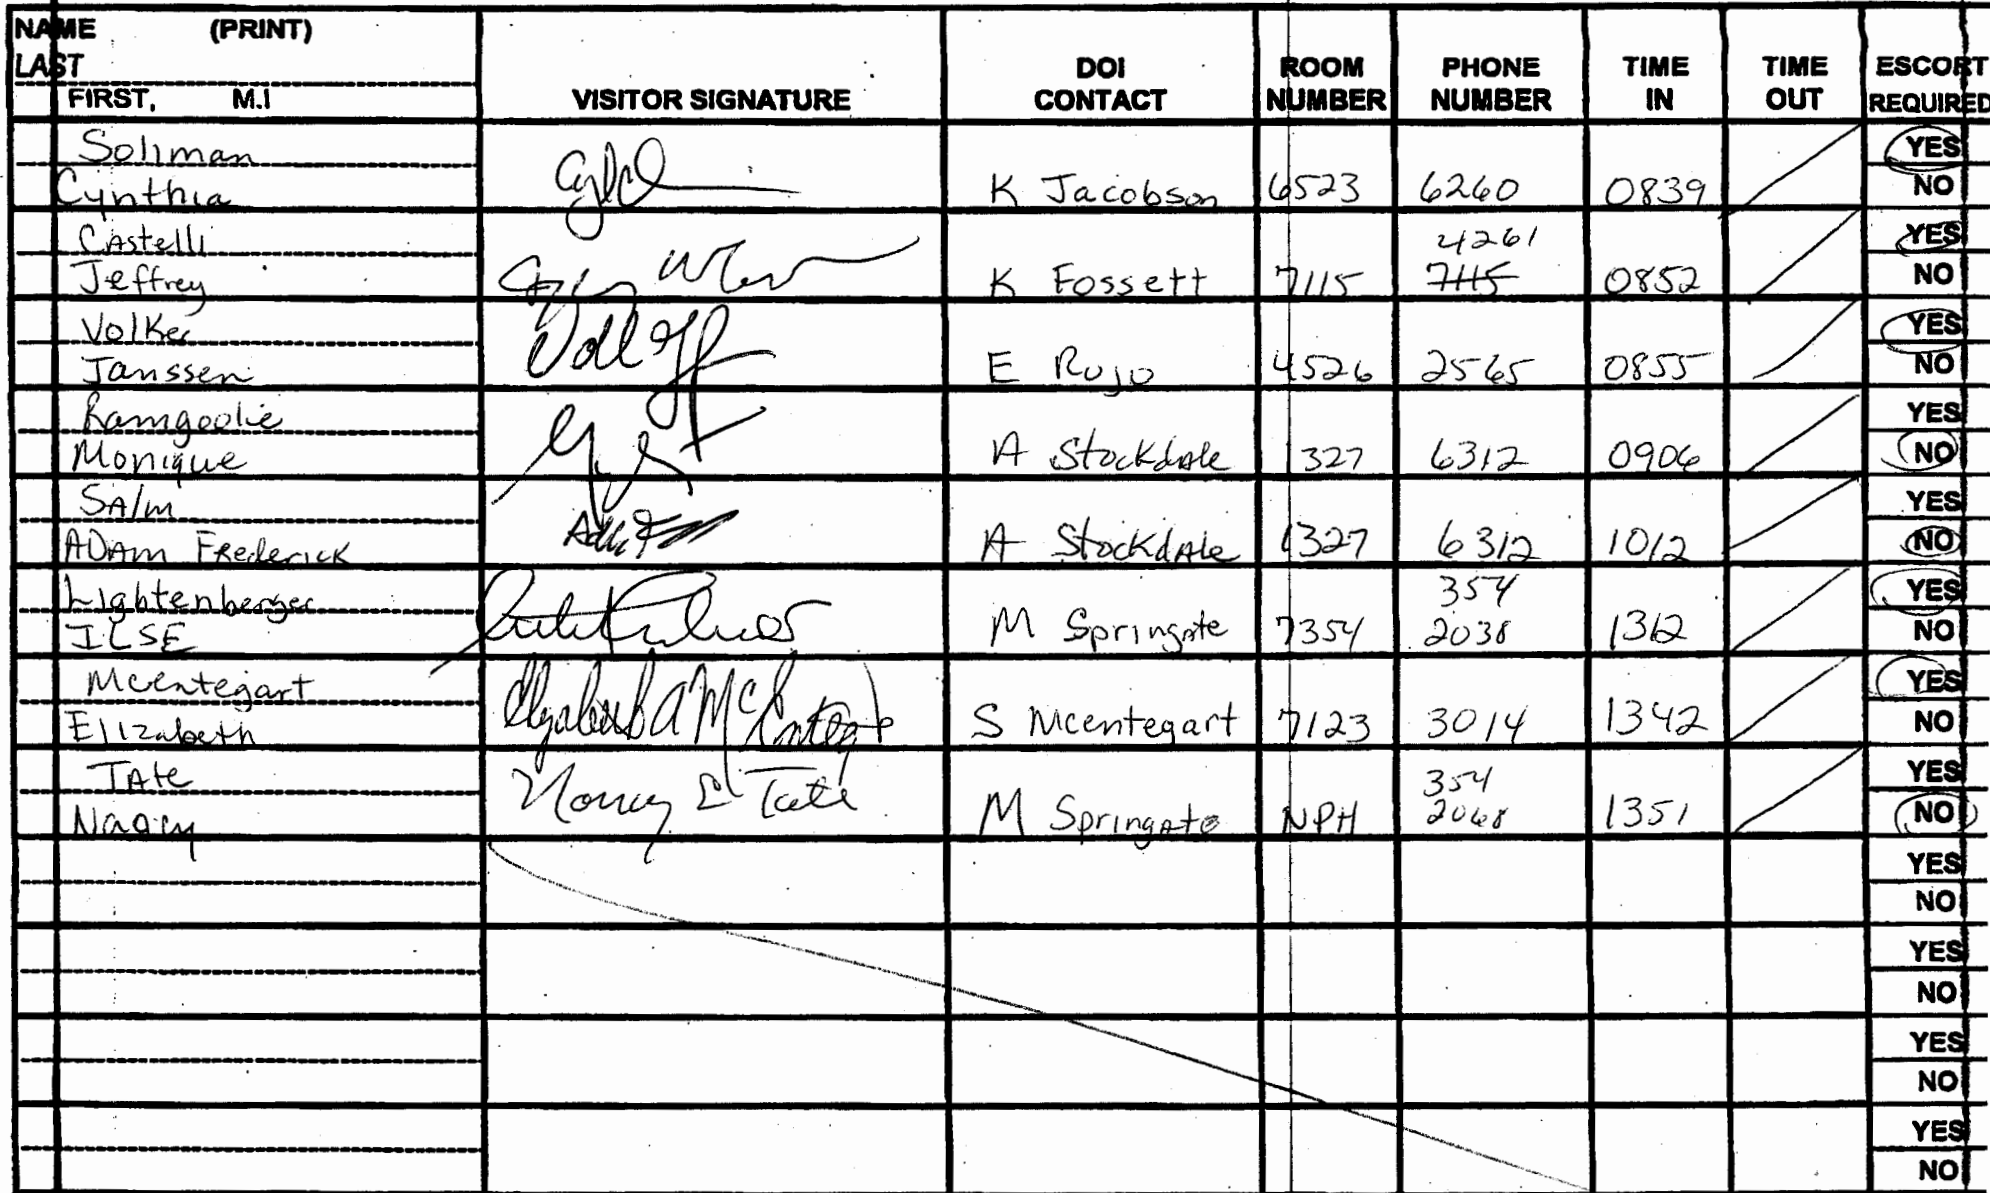 NAME (PRINT)
LAST
FIRST, M.I
VISITOR SIGNATURE
DOI CONTACT
ROOM NUMBER
PHONE NUMBER
TIME IN
TIME OUT
ESCORT REQUIRED
Soliman
Cynthia K Jacobson 6523 6260 0839 YES NO
Castelli 4261
Jeffrey K Fossett 7115 7115 0852 YES NO
Volker
Janssen E Rujo 4526 2565 0855 YES NO
Ramgoolie
Monique A Stockdale 1327 6312 0906 YES NO
SAlm
ADAm FRederick A StockdAle 1327 6312 1012 YES NO
Lightenberger 354
ILSE M Springate 7354 2038 1312 YES NO
Mcentegart
Elizabeth Elizabeth A McEntegart S Mcentegart 7123 3014 1342 YES NO
TAte 354
Nancy Nancy E Tate M Springate NPH 2068 1351 YES NO
YES
NO
YES
NO
YES
NO
YES
NO